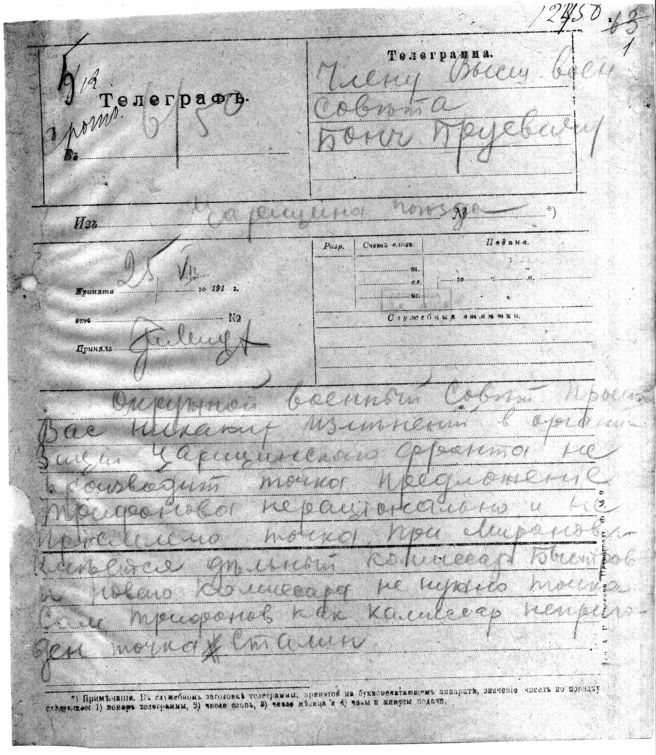 12450
63
1
Телеграмма.
Члену Высш воен
совѣта
Бонч Бруевичу
Телеграфъ.
6/50
Въ
Изъ Царицина поезда № *)
Разр. Счетъ словъ. Подана.
25 VII
Принята го 191 г.
сл. го ч. м.
отъ №
Служебныя отмѣтки.
Принялъ
Окружной военный Совѣт просит
Вас никаких измѣнений в органи-
зации Царицинского фронта не
производит точка предложение
Трифонова нерационально и не
приемлемо точка при Миронове
имѣется дѣльный комиссар Быстров
и нового комиссара не нужно точка
Сам Трифонов как комиссар неприго-
ден точка Сталин
*) Примѣчаніе. Въ служебномъ заголовкѣ телеграммы, принятой на буквопечатающемъ аппаратѣ, значеніе чиселъ по порядку
слѣдующее: 1) номеръ телеграммы, 2) число словъ, 3) число мѣсяца и 4) часы и минуты подачи.